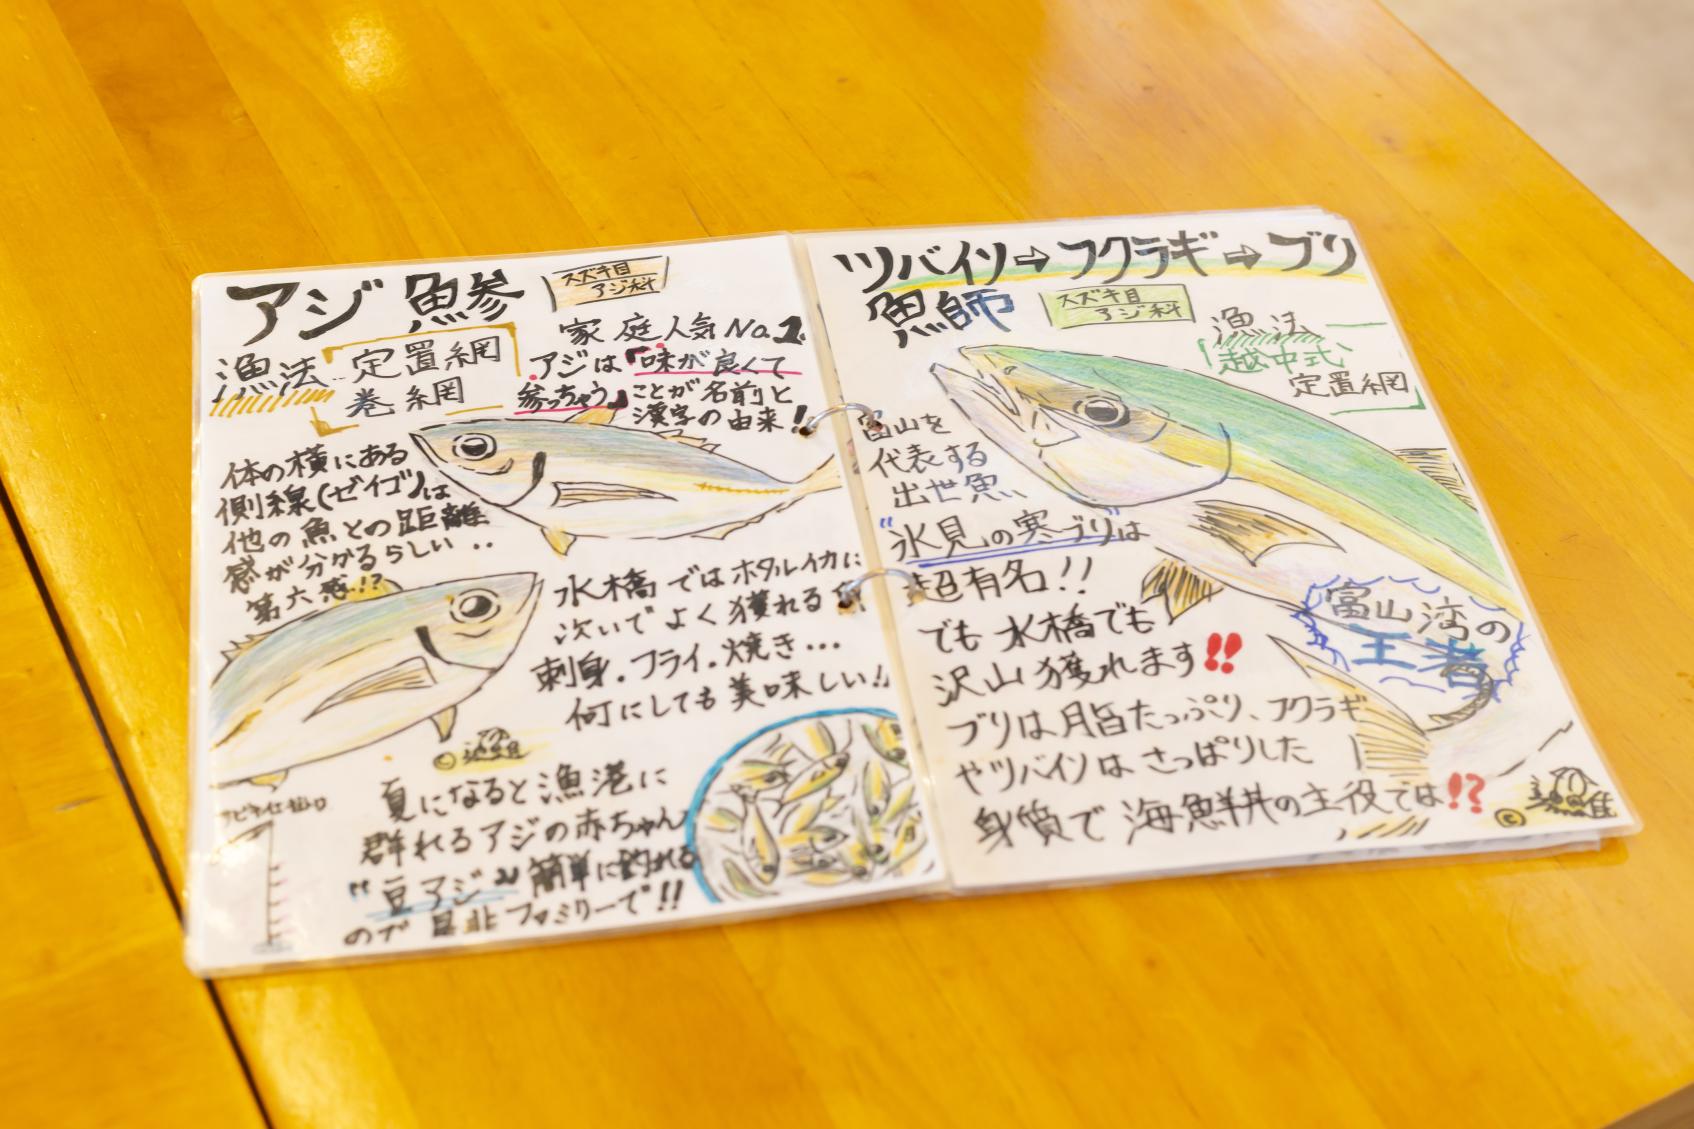 アジ 鯵
スズキ目
アジ科
漁法
定置網
巻網
家庭人気No.1
アジは「味が良くて
参っちゃう」ことが名前と
漢字の由来!
体の横にある
側線(ゼイゴ)は
他の魚との距離
感が分かるらしい‥
第六感!?
水橋ではホタルイカに
次いでよく獲れる
刺身.フライ.焼き…
何にしても美味しい!!
夏になると漁港に
群れるアジの赤ちゃん
"豆アジ"簡単に釣れる
ので是非ファミリーで!!
ツバイソ⇨フクラギ⇨ブリ
魚師
スズキ目
アジ科
漁法
越中式
定置網
富山を
代表する
出世魚、
"氷見の寒ブリ"は
超有名!!
でも水橋でも
沢山獲れます!!
ブリは脂たっぷり、フクラギ
やツバイソはさっぱりした
身質で海鮮丼の主役では!?
富山湾の
王者